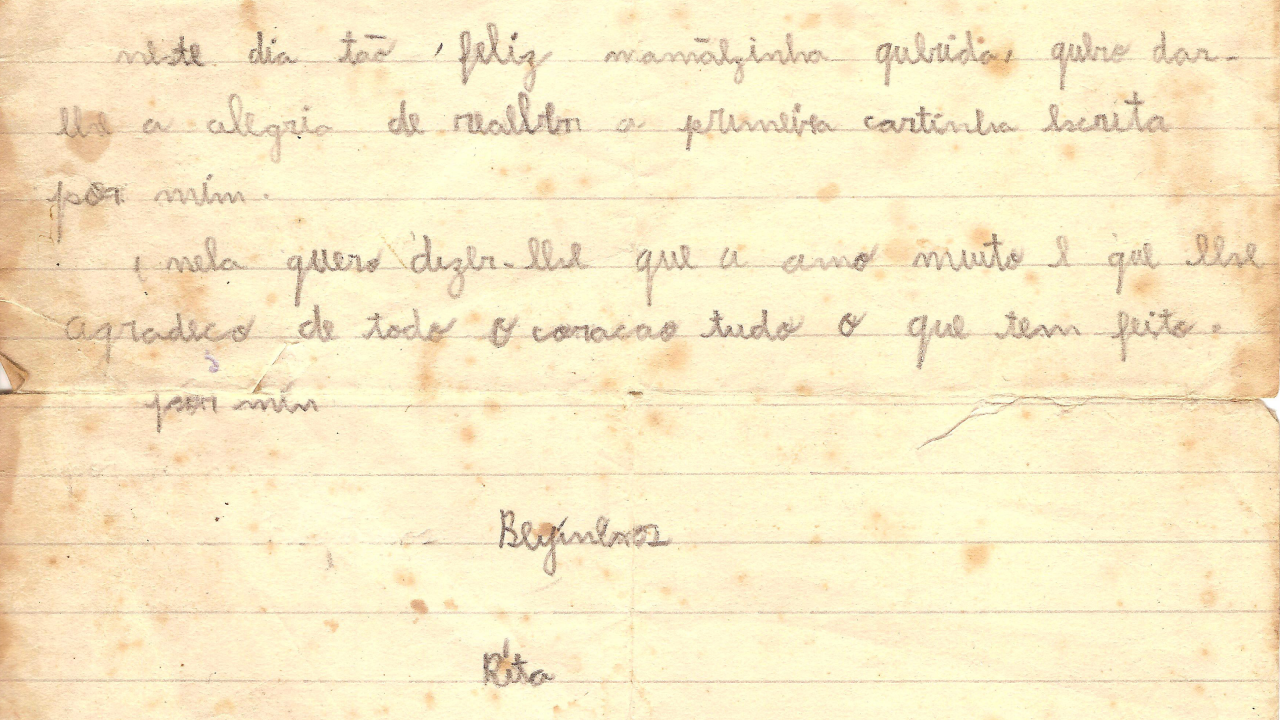 neste dia tão feliz mamãezinha querida, quero dar-
lhe a alegria de receber a primeira cartinha escrita
por mim.
nela quero dizer-lhe que a amo muito e que lhe
agradeco de todo o coracao tudo o que tem feito.
por mim
Beijinhos
Rita